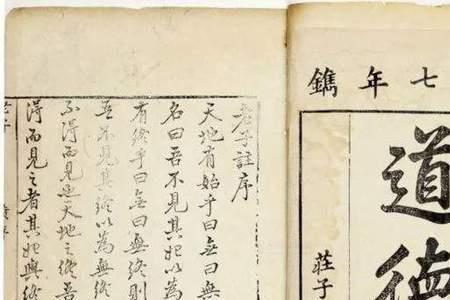 七年鐫
道德
莊子
老子註序
天地有始乎曰無曰無
名曰吾不見其始以為
有終乎曰無曰無終則
吾不見其終以為無終
不得而見也天地之終吾
得而見之者其始無終